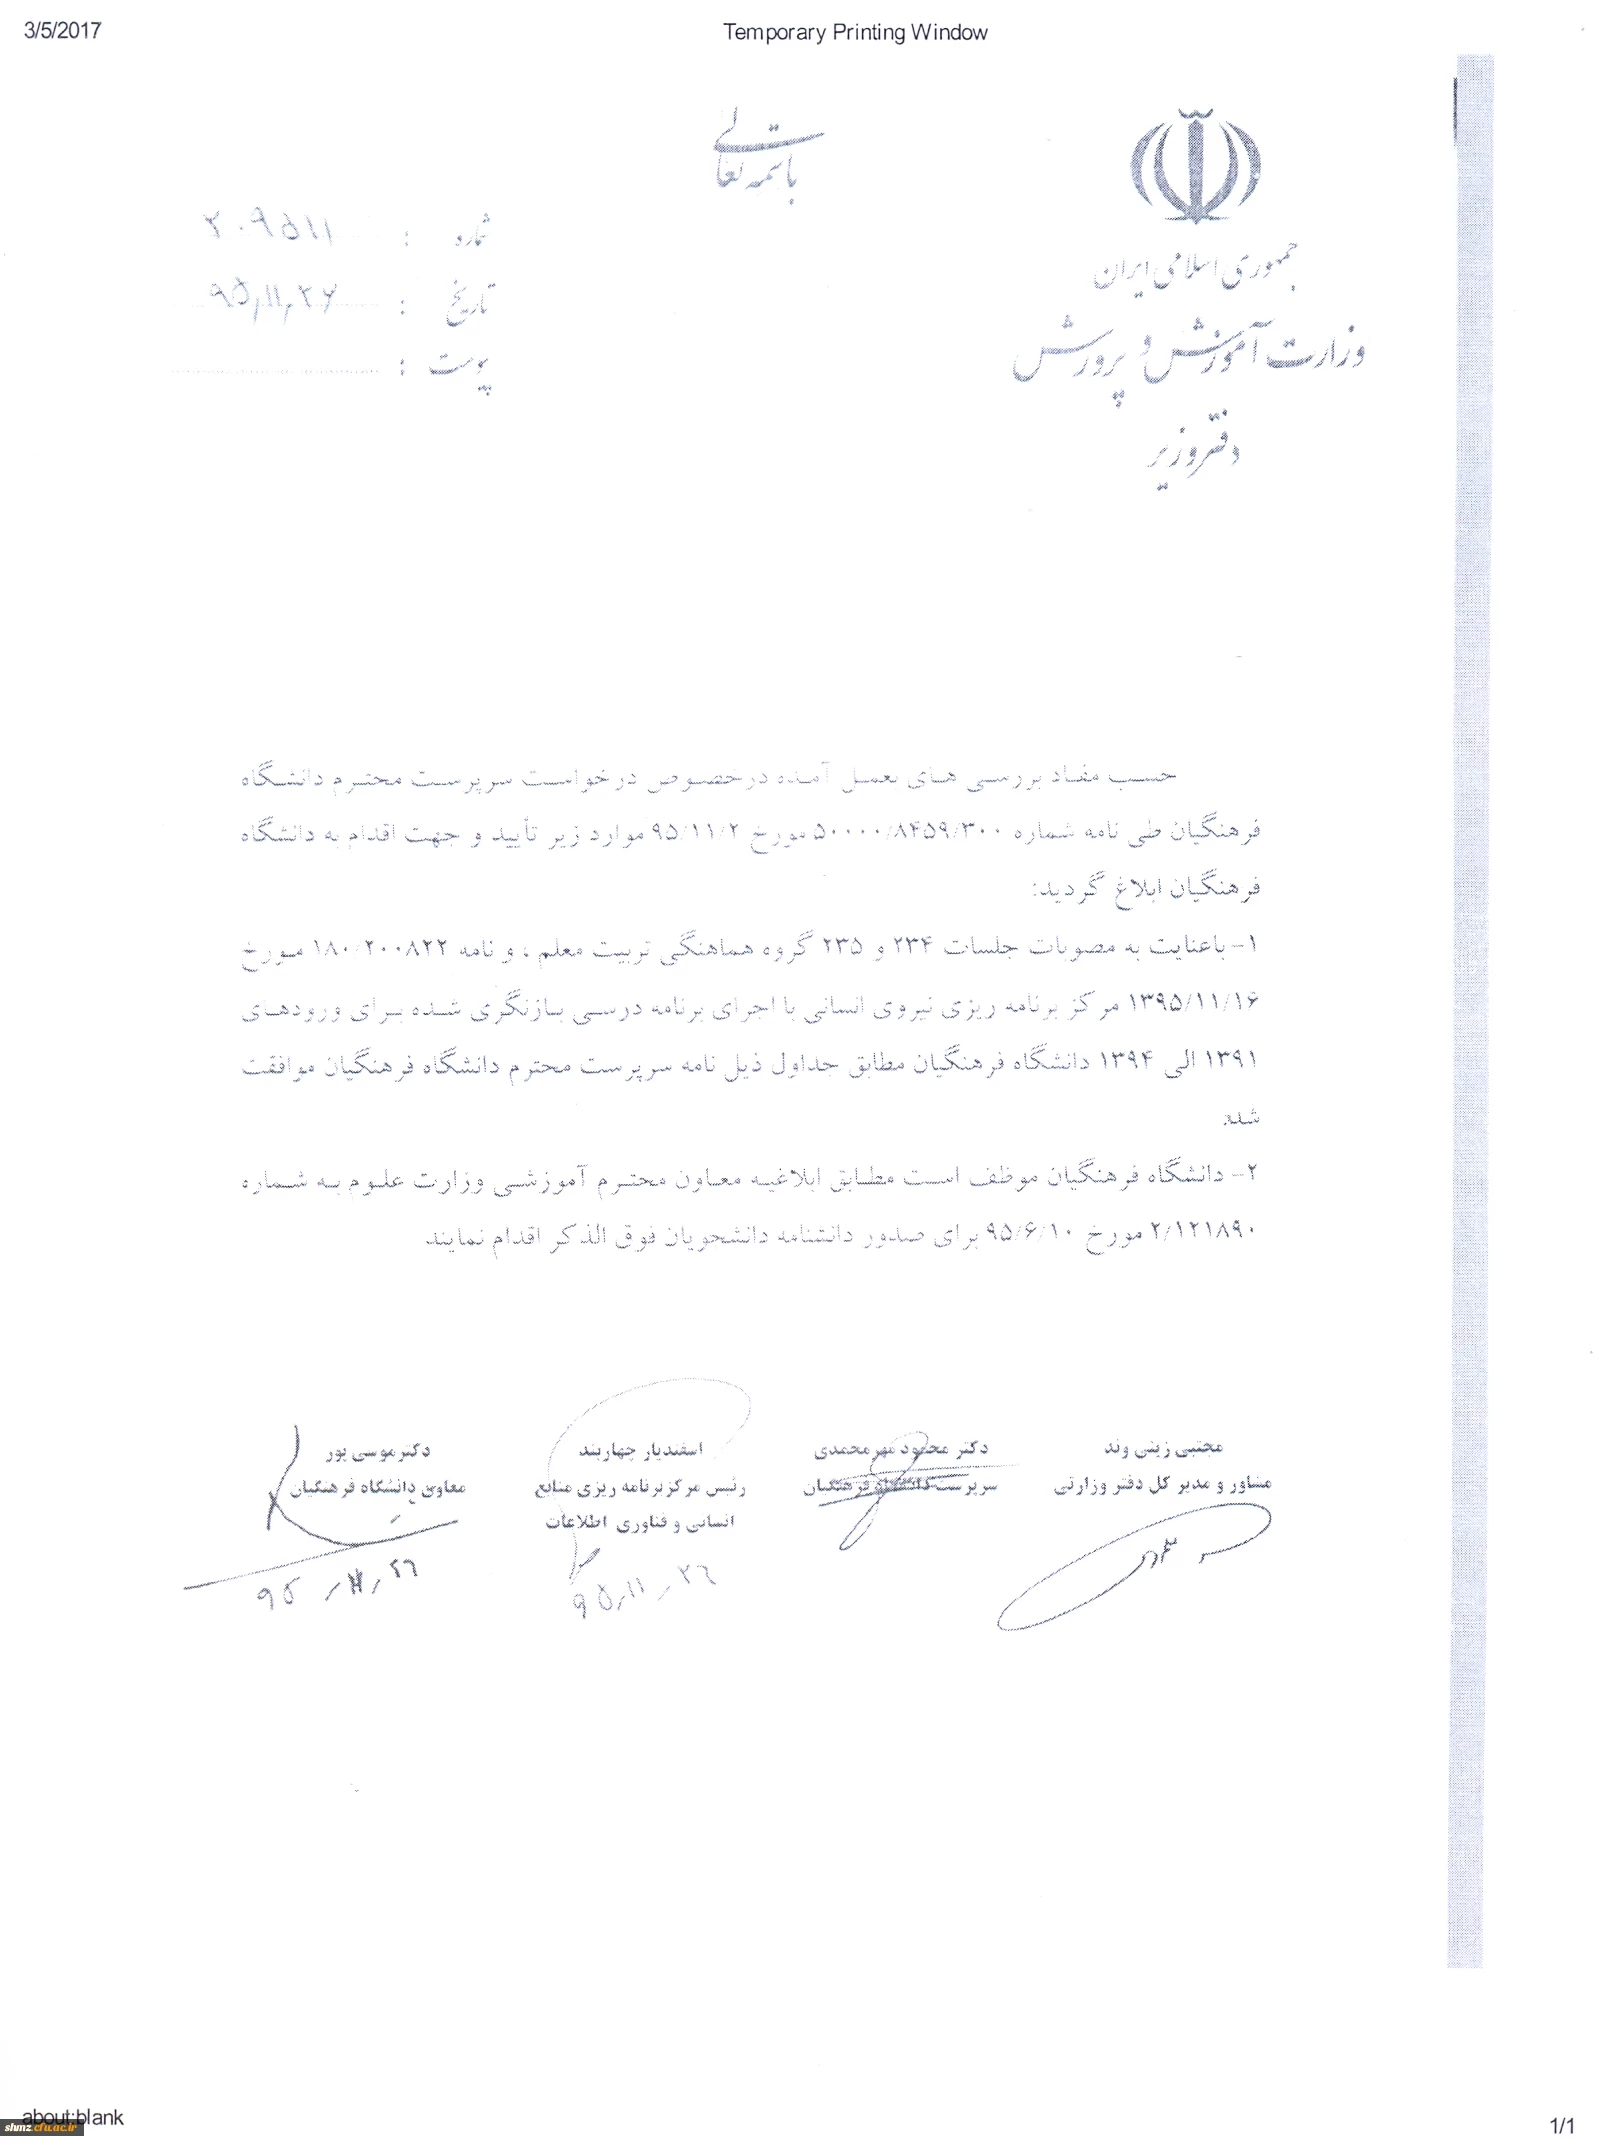 3/5/2017
Temporary Printing Window
باسمه تعالی
جمهوری اسلامی ایران
وزارت آموزش و پرورش
دفتر وزیر
شماره : ۲۰۹۵۱۱
تاریخ : ۹۵,۱۱,۲۶
پیوست :
حسب مفاد بررسی های بعمل آمده درخصوص درخواست سرپرست محترم دانشگاه
فرهنگیان طی نامه شماره ۵۰۰۰۰/۸۴۵۹/۳۰۰ مورخ ۹۵/۱۱/۲ موارد زیر تأیید و جهت اقدام به دانشگاه
فرهنگیان ابلاغ گردید:
۱- باعنایت به مصوبات جلسات ۲۳۴ و ۲۳۵ گروه هماهنگی تربیت معلم ، و نامه ۱۸۰/۲۰۰۸۲۲ مورخ
۱۳۹۵/۱۱/۱۶ مرکز برنامه ریزی نیروی انسانی با اجرای برنامه درسی بازنگری شده برای ورودهای
۱۳۹۱ الی ۱۳۹۴ دانشگاه فرهنگیان مطابق جداول ذیل نامه سرپرست محترم دانشگاه فرهنگیان موافقت
شد.
۲- دانشگاه فرهنگیان موظف است مطابق ابلاغیه معاون محترم آموزشی وزارت علوم به شماره
۲/۱۲۱۸۹۰ مورخ ۹۵/۶/۱۰ برای صدور دانشنامه دانشجویان فوق الذکر اقدام نمایند.
مجتبی زینی وند
مشاور و مدیر کل دفتر وزارتی
دکتر محمود مهرمحمدی
سرپرست دانشگاه فرهنگیان
اسفندیار چهاربند
رئیس مرکزبرنامه ریزی منابع
انسانی و فناوری اطلاعات
۹۵,۱۱,۲۶
دکترموسی پور
معاون دانشگاه فرهنگیان
۹۵,۱۱,۲۶
about:blank
1/1
shmz.cfu.ac.ir